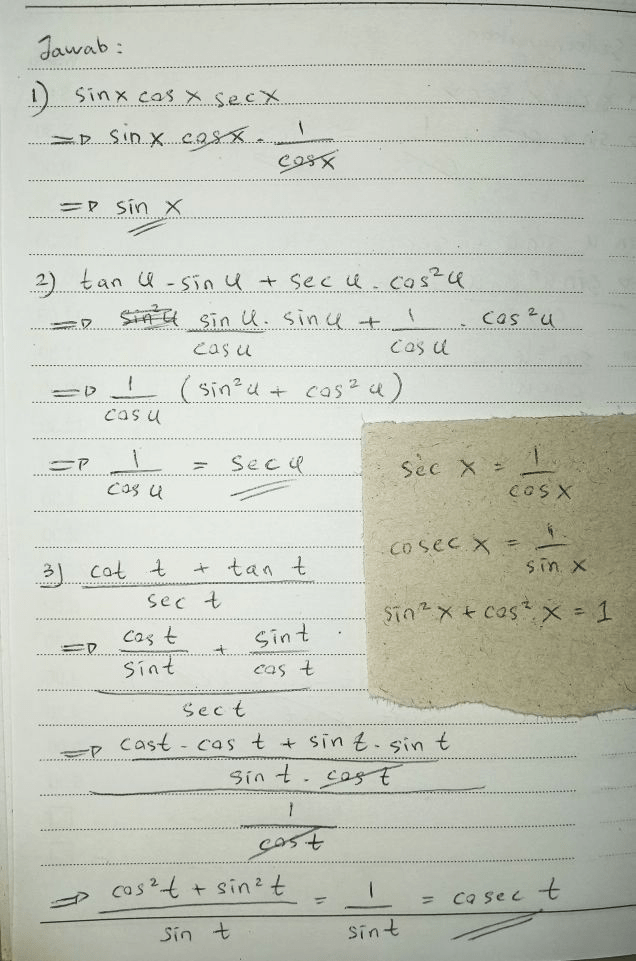 Jawab :
1) sin x cos x sec x
=> sin x cos x . 1/cos x
=> sin x
2) tan u - sin u + sec u . cos²u
=> sin u/cos u . sin u + 1/cos u . cos²u
=> 1/cos u (sin²u + cos²u)
=> 1/cos u = sec u
sec x = 1/cos x
cosec x = 1/sin x
sin²x + cos²x = 1
3) (cot t + tan t)/sec t
=> (cos t/sin t + sin t/cos t)/sec t
=> ((cos t - cos t + sin t . sin t)/(sin t . cos t))/(1/cos t)
=> (cos²t + sin²t)/sin t = 1/sin t = cosec t